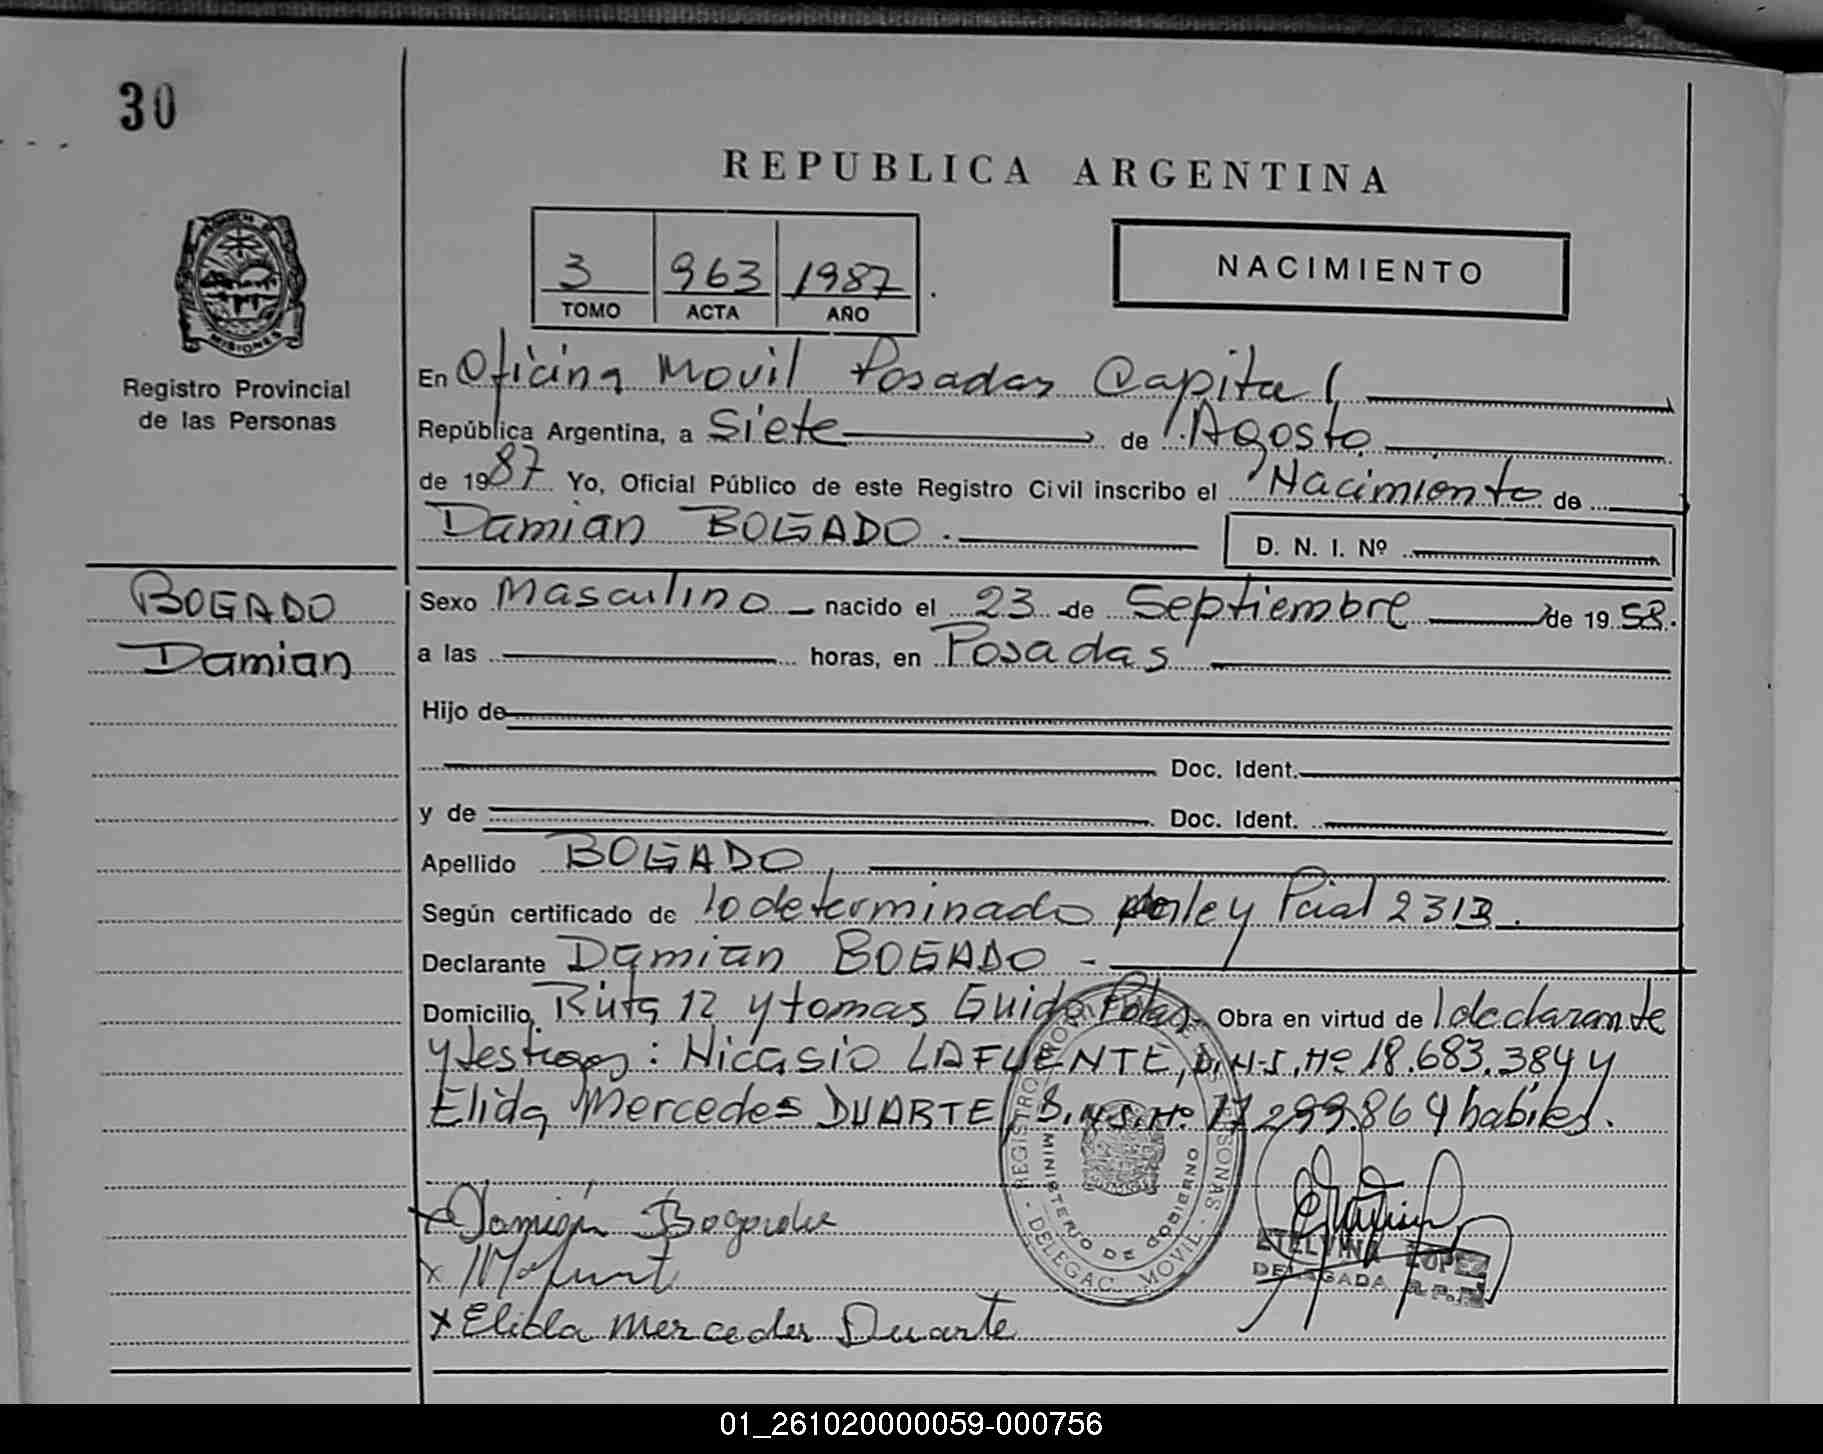 30
REPUBLICA ARGENTINA
3 963 1987
TOMO ACTA AÑO
NACIMIENTO
MISIONES
Registro Provincial
de las Personas
En Oficina Movil Posadas Capital
República Argentina, a Siete de Agosto
de 1987 Yo, Oficial Público de este Registro Civil inscribo el Nacimiento de
Damian BOGADO. D. N. I. Nº
BOGADO
Damian
Sexo Masculino nacido el 23 de Septiembre de 1958.
a las horas, en Posadas
Hijo de
Doc. Ident.
y de Doc. Ident.
Apellido BOGADO
Según certificado de lo determinado por ley Pcial 2313.
Declarante Damian BOGADO -
Domicilio Ruta 12 y tomas Guido Pdas. Obra en virtud de l declarante
y testigos: Nicasio LAFUENTE, D.N.I. Nº 18.683.384 y
Elida Mercedes DUARTE, D.N.I. Nº 17.299.864 habiles.
REGISTRO PROVINCIAL DE LAS PERSONAS - DELEGAC. MOVIL -
MINISTERIO DE GOBIERNO
x Damián Bogado
x
x Elida Mercedes Duarte
ETELVINA LOPEZ
DELEGADA R.P.P.
01_261020000059-000756